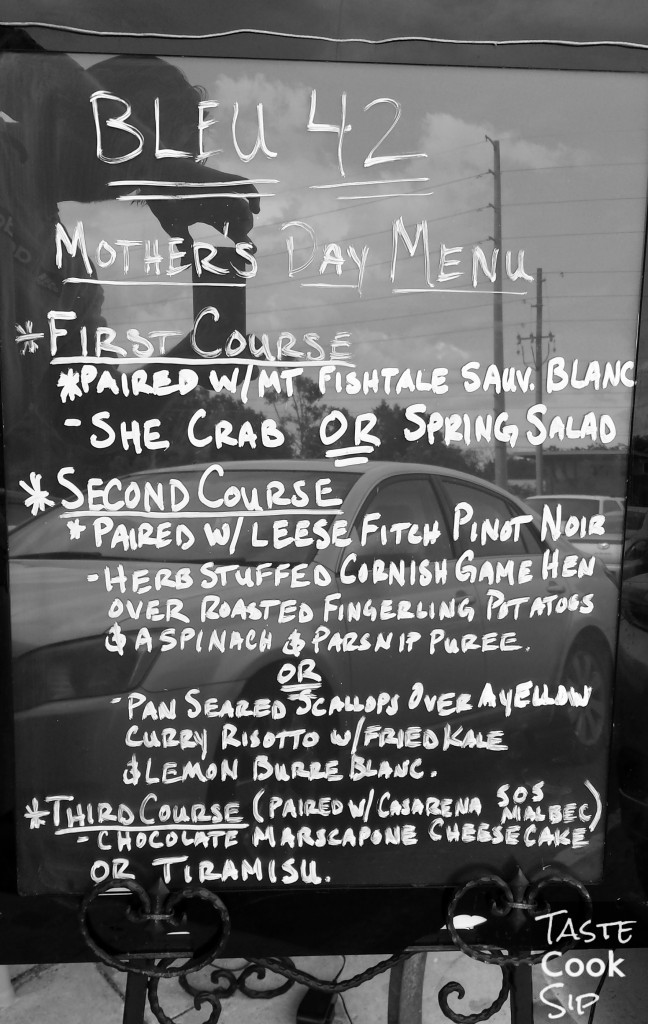 BLEU 42
MOTHER'S DAY MENU
*FIRST COURSE
*PAIRED W/MT FISHTALE SAUV. BLANC
- SHE CRAB OR SPRING SALAD
*SECOND COURSE
*PAIRED W/ LEESE FITCH PINOT NOIR
- HERB STUFFED CORNISH GAME HEN
OVER ROASTED FINGERLING POTATOES
& A SPINACH & PARSNIP PUREE.
OR
- PAN SEARED SCALLOPS OVER A YELLOW
CURRY RISOTTO W/FRIED KALE
& LEMON BURRE BLANC.
*THIRD COURSE (PAIRED W/ CASARENA 505 MALBEC)
- CHOCOLATE MARSCAPONE CHEESECAKE
OR TIRAMISU.
TASTE
COOK
SIP